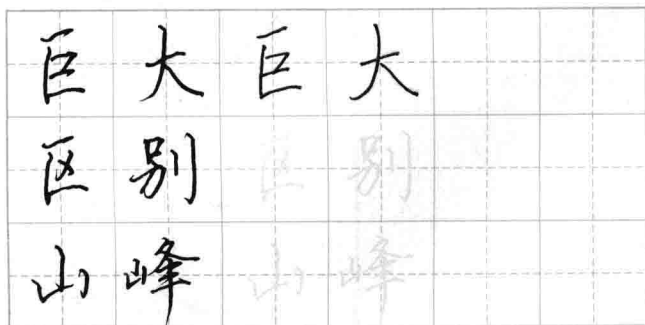 巨大巨大
区别区别
山峰山峰